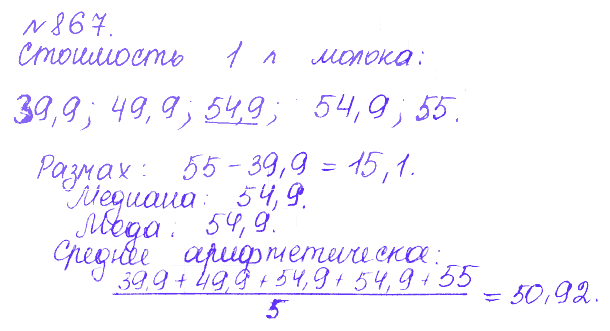 №867.
Стоимость 1 л молока:
39,9; 49,9; 54,9; 54,9; 55.
Размах: 55 - 39,9 = 15,1.
Медиана: 54,9.
Мода: 54,9.
Среднее арифметическое:
39,9 + 49,9 + 54,9 + 54,9 + 55
5
= 50,92.